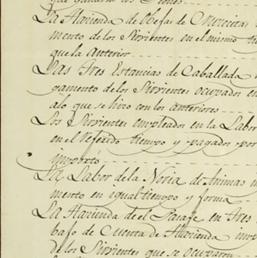 que ganaron los Peones
La Hacienda de Obejas de Cruceitas
mento de los Sirvientes en el mismo tiem
que la anterior
Las tres Estancias de Caballada
pagamento de los Sirvientes ocupados en
alo que se hiso con los anteriores
Los Sirvientes empleados en la Labor
en el referido tiempo y pagados por
importo
La Labor de la Noria de Animas
mento en igual tiempo y forma
La Hacienda de el Paraje en tres
bajo de Cuenta de Hacienda imp
de los Sirvientes que se ocuparon